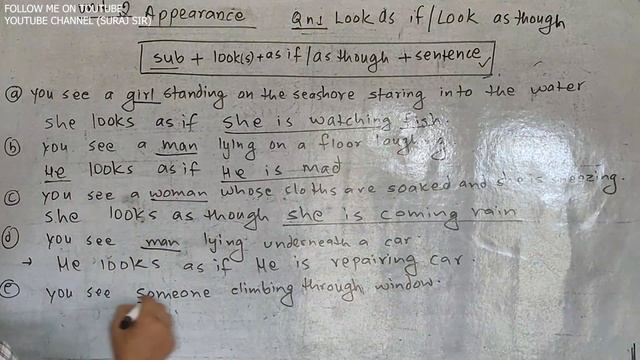 FOLLOW ME ON YOUTUBE
YOUTUBE CHANNEL (SURAJ SIR)
2 Appearance Qn1 Look as if/Look as though
sub + look(s)+as if/as though + sentence
(a) you see a girl standing on the seashore staring into the water
she looks as if she is watching fish.
(b) you see a man lying on a floor laughing
He looks as if He is mad
(c) you see a woman whose cloths are soaked and she is
she looks as though she is coming rain
(d) you see man lying underneath a car.
→ He looks as if He is repairing car.
(e) you see someone climbing through window.